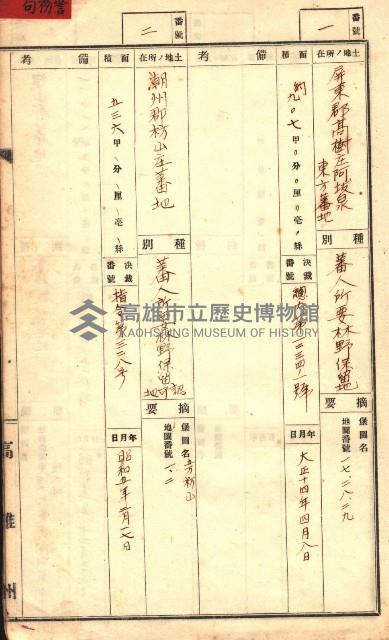 警務局
番號
一
土地ノ所在
屏東郡高樹庄阿拔泉
東方蕃地
種別
蕃人所要林野保留地
摘要
堡圖名
地圖番號
一七、二八、二九
面積
約九〇七甲〇分〇厘〇毫〇絲
決裁番號
總
第三三四ノ一號
年月日
大正十四年四月八日
備考
番號
二
土地ノ所在
潮州郡枋山庄蕃地
種別
蕃人所要林野保留地
摘要
堡圖名
枋山
地圖番號
一、二
面積
五三六甲、分、厘、毫、絲
決裁番號
指令第三三八号
年月日
昭和五年三月一七日
備考
高雄州
高雄市立歷史博物館
KAOHSIUNG MUSEUM OF HISTORY